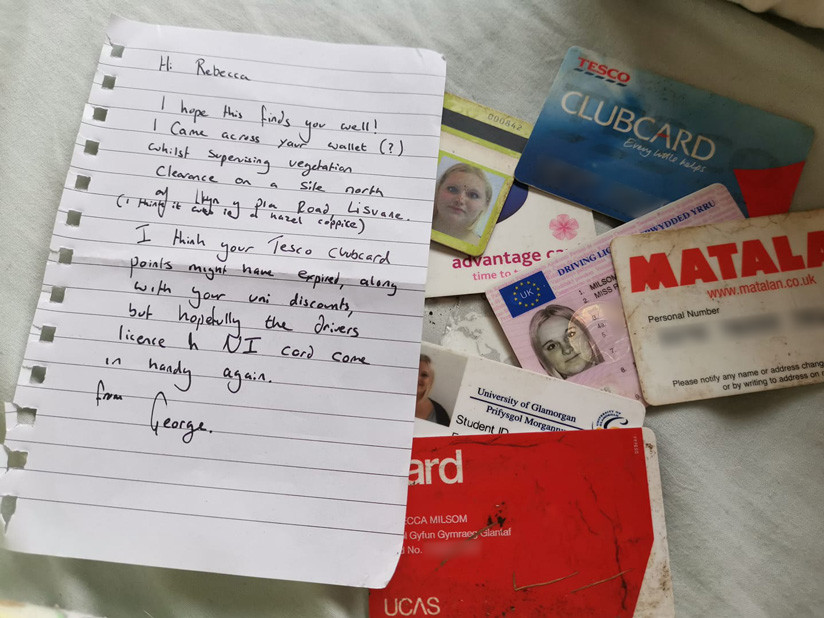 Hi Rebecca
I hope this finds you well!
I came across your wallet (?)
whilst supervising vegetation
clearance on a site north
of Llwyn y Pia Road, Lisvane.
(I think it was in a hazel coppice)
I think your Tesco Clubcard
points might have expired, along
with your uni discounts,
but hopefully the drivers
licence & NI card come
in handy again.
from
George.
000842
TESCO
CLUBCARD
Every little helps
advantage ca
time to
DRIVING LIC
WYDDED YRRU
UK
1. MILSOM
2. MISS R
MATALA
www.matalan.co.uk
Personal Number
Please notify any name or address chang
or by writing to address on r
University of Glamorgan
Prifysgol Morgannw
Student ID
ard
ECCA MILSOM
l Gyfun Gymraeg Glantaf
d No.
UCAS